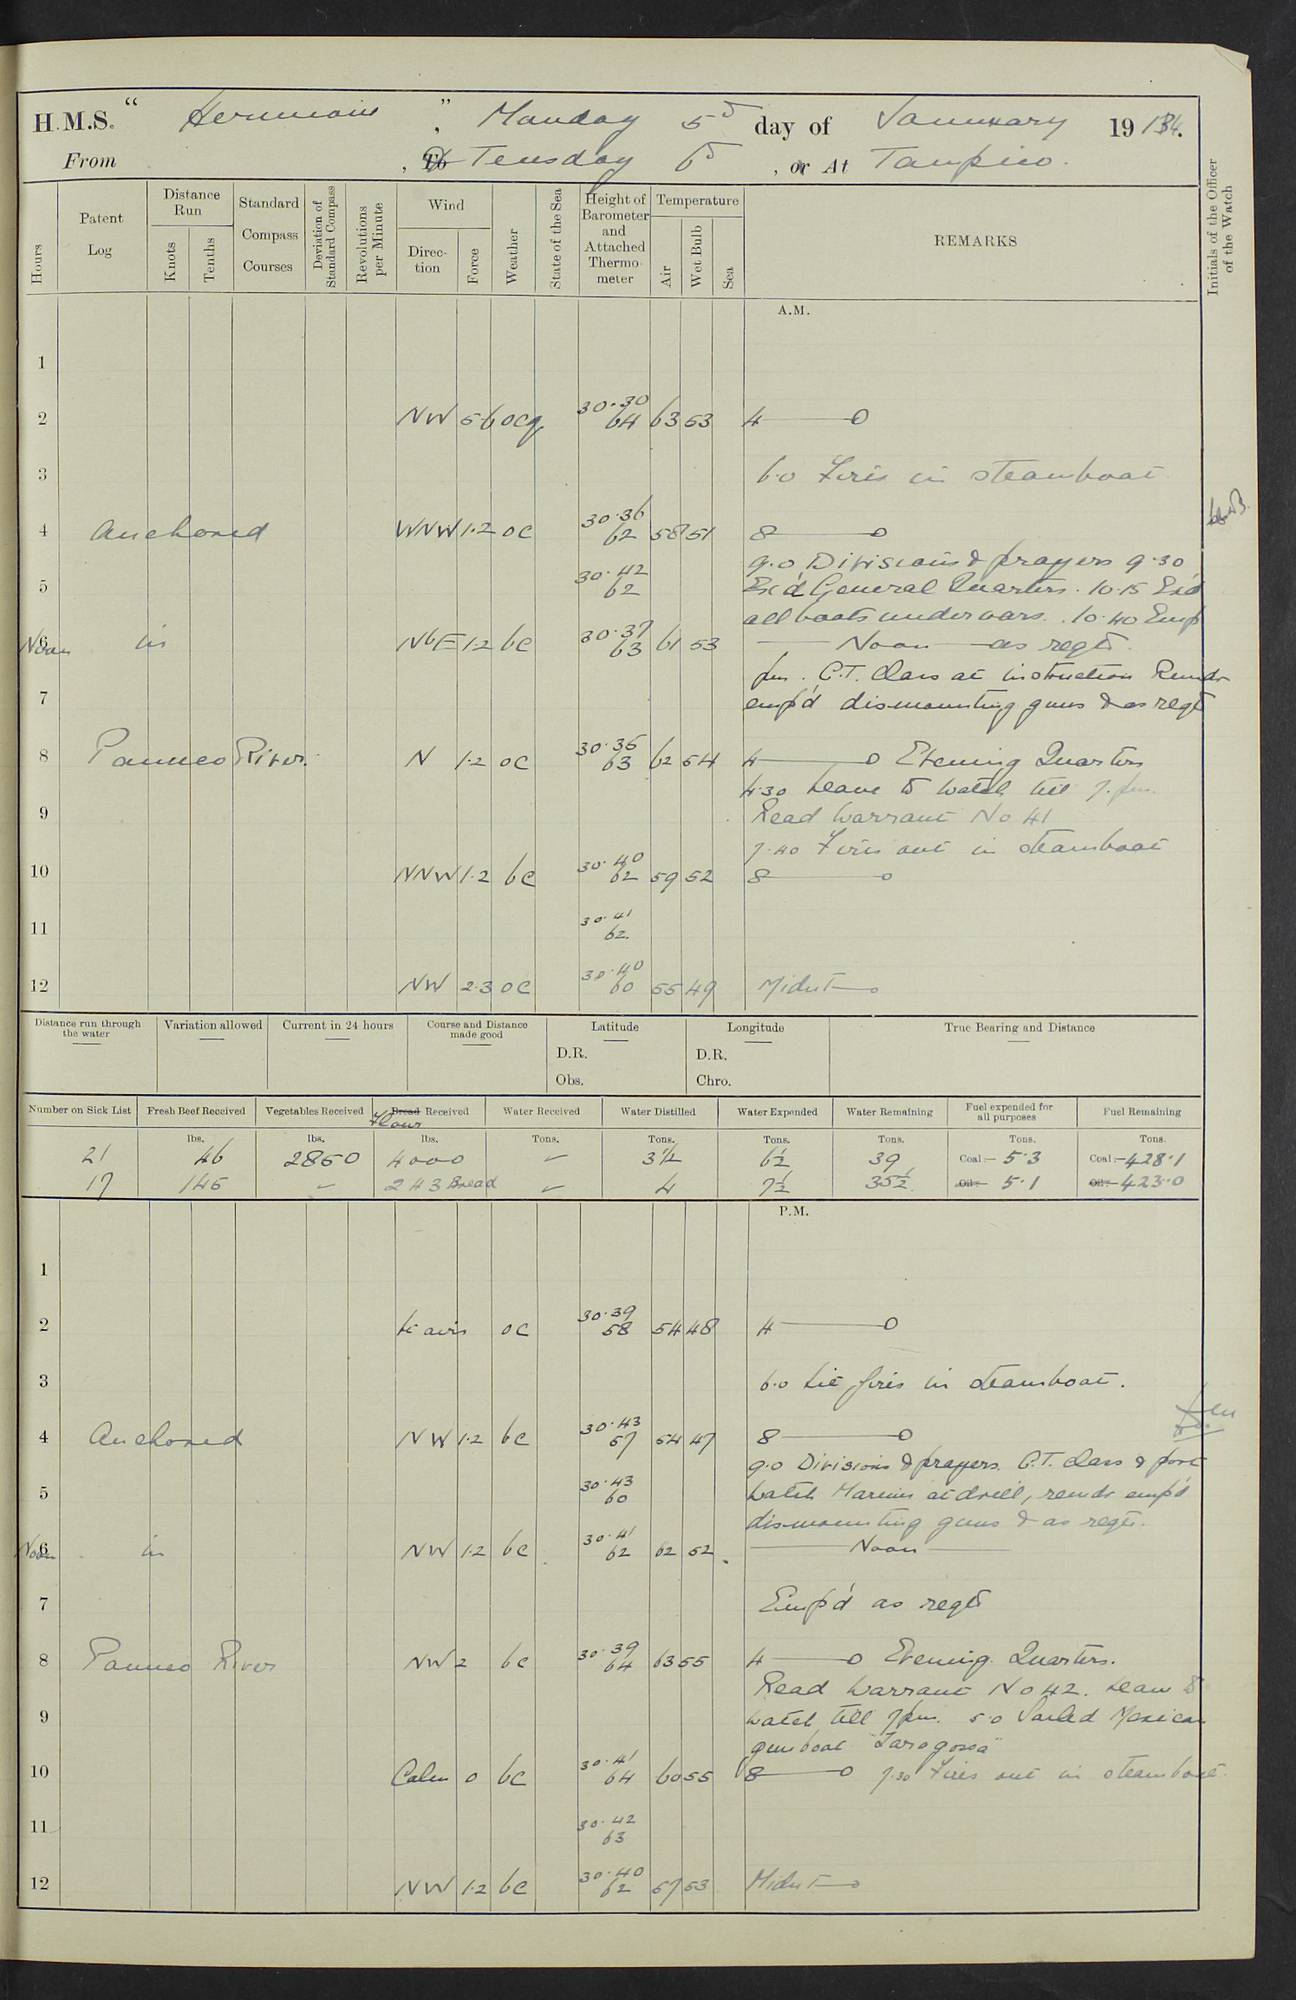 H.M.S. " Hermione ", Monday 5th day of January 19 14.
From , To Teusday 6th , or At Tampico.
Hours
Patent Log
Distance Run
Knots
Tenths
Standard Compass Courses
Deviation of Standard Compass
Revolutions per Minute
Wind
Direction
Force
Weather
State of the Sea
Height of Barometer and Attached Thermometer
Temperature
Air
Wet Bulb
Sea
REMARKS
Initials of the Officer of the Watch
A.M.
1
2 NW 5·6 ocq 30·30 64 63 53 4
3 6·0 Fires in steamboat
4 Anchored WNW 1·2 oc 30·36 62 58 51 8
9.0 Divisions & prayers 9·30
5 30·42 62 Exc'd General Quarters. 10·15 Exc'd
all boats under oars. 10·40 Emp
6 Noon in NbE 1·2 bc 30·37 63 61 53 Noon as reqts.
pm. C.T. Class at instruction Remdr
7 emp'd dismounting guns & as reqts
8 Panuco River. N 1·2 oc 30·35 63 62 54 4 Evening Quarters
4·30 Leave to watch till 7. pm.
9 Read Warrant No 41
7·40 Fires out in steamboat
10 NNW 1·2 bc 30·40 62 59 52 8
11 30·41 62
12 NW 2·3 oc 30·40 60 55 49 Midnt
Distance run through the water
Variation allowed
Current in 24 hours
Course and Distance made good
Latitude
D.R.
Obs.
Longitude
D.R.
Chro.
True Bearing and Distance
Number on Sick List
Fresh Beef Received
Vegetables Received
Bread Received
Flour
Water Received
Water Distilled
Water Expended
Water Remaining
Fuel expended for all purposes
Fuel Remaining
lbs. lbs. lbs. Tons. Tons. Tons. Tons. Tons. Tons.
21 46 2850 4000 – 3½ 6½ 39 Coal:– 5·3 Coal:– 428·1
17 145 – 243 Bread – 4 7½ 35½ Oil:– 5·1 Oil:– 423·0
P.M.
1
2 Lt airs oc 30·39 58 54 48 4
3 6·0 Lit fires in steamboat.
4 Anchored NW 1·2 bc 30·43 57 54 47 8
9·0 Divisions & prayers. C.T. Class & port
5 30·43 60 watch Marines at drill, remdr emp'd
dismounting guns & as reqts.
6 Noon in NW 1·2 bc 30·41 62 62 52 Noon
7 Emp'd as reqts
8 Panuco River NW 2 bc 30·39 64 63 55 4 Evening Quarters.
Read Warrant No 42. Leave to
9 watch till 7pm. 5·0 Sailed Mexican
gunboat "Zaragosa"
10 Calm 0 bc 30·41 64 60 55 8 7·30 Fires out in steamboat.
11 30·42 63
12 NW 1·2 bc 30·40 62 57 53 Midnt